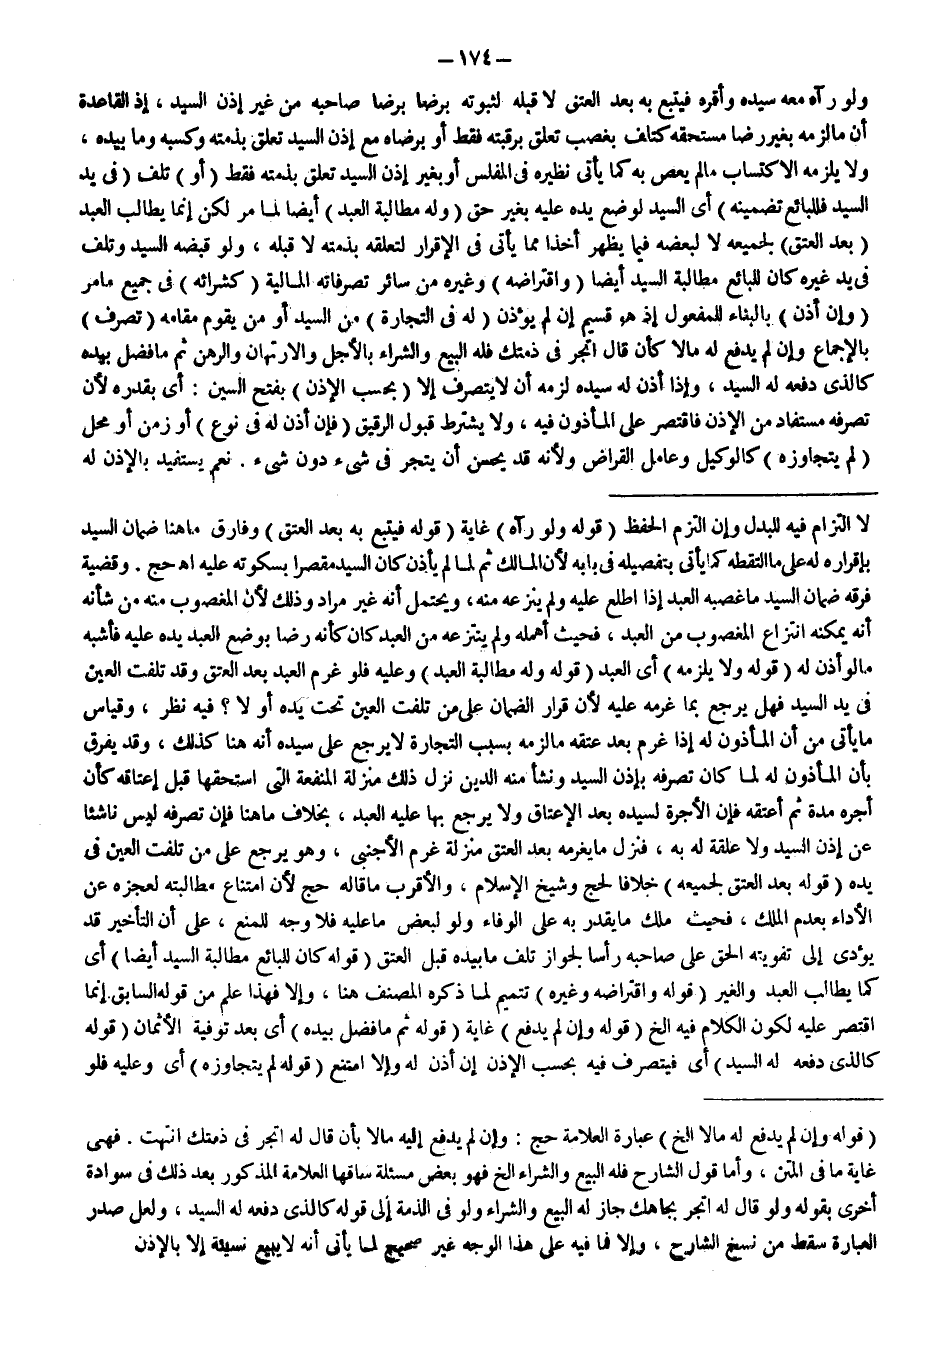 — ١٧٤ —
ولو رآه معه سيده وأقره فيتبع به بعد العتق لا قبله لثبوته برضا برضا صاحبه من غير إذن السيد ، إذ القاعدة
أن مالزمه بغير رضا مستحقه كتلف بغصب تعلق برقبته فقط أو برضاه مع إذن السيد تعلق بذمته وكسبه وما بيده ،
ولا يلزمه الاكتساب مالم يعص به كما يأتى نظيره فى المفلس أو بغير إذن السيد تعلق بذمته فقط ( أو ) تلف ( فى يد
السيد فللبائع تضمينه ) أى السيد لوضع يده عليه بغير حق ( وله مطالبة العبد ) أيضا لما مر لكن إنما يطالب العبد
( بعد العتق) لجميعه لا لبعضه فيما يظهر أخذا مما يأتى فى الإقرار لتعلقه بذمته لا قبله ، ولو قبضه السيد وتلف
فى يد غيره كان للبائع مطالبة السيد أيضا ( واقتراضه ) وغيره من سائر تصرفاته المالية ( كشرائه ) فى جميع مامر
( وإن أذن ) بالبناء للمفعول إذ هو قسيم إن لم يؤذن ( له فى التجارة ) من السيد أو من يقوم مقامه ( تصرف )
بالإجماع وإن لم يدفع له مالا كأن قال اتجر فى ذمتك فله البيع والشراء بالأجل والارتهان والرهن ثم مافضل بيده
كالذى دفعه له السيد ، وإذا أذن له سيده لزمه أن لايتصرف إلا ( بحسب الإذن ) بفتح السين : أى بقدره لأن
تصرفه مستفاد من الإذن فاقتصر على المأذون فيه ، ولا يشترط قبول الرقيق ( فإن أذن له فى نوع ) أو زمن أو محل
( لم يتجاوزه ) كالوكيل وعامل القراض ولأنه قد يحسن أن يتجر فى شىء دون شىء . نعم يستفيد بالإذن له
لا التزام فيه للبدل وإن التزم الحفظ ( قوله ولو رآه ) غاية ( قوله فيتبع به بعد العتق ) وفارق ماهنا ضمان السيد
بإقراره له على ماالتقطه كما يأتى بتفصيله فى بابه لأن المالك ثم لما لم يأذن كان السيد مقصرا بسكوته عليه اه حج . وقضية
فرقه ضمان السيد ماغصبه العبد إذا اطلع عليه ولم ينزعه منه ، ويحتمل أنه غير مراد وذلك لأن المغصوب منه من شأنه
أنه يمكنه انتزاع المغصوب من العبد ، فحيث أهمله ولم ينتزعه من العبد كان كأنه رضا بوضع العبد يده عليه فأشبه
مالو أذن له ( قوله ولا يلزمه ) أى العبد ( قوله وله مطالبة العبد ) وعليه فلو غرم العبد بعد العتق وقد تلفت العين
فى يد السيد فهل يرجع بما غرمه عليه لأن قرار الضمان على من تلفت العين تحت يده أو لا ؟ فيه نظر ، وقياس
مايأتى من أن المأذون له إذا غرم بعد عتقه مالزمه بسبب التجارة لايرجع على سيده أنه هنا كذلك ، وقد يفرق
بأن المأذون له لما كان تصرفه بإذن السيد ونشأ منه الدين نزل ذلك منزلة المنفعة التى استحقها قبل إعتاقه كأن
أجره مدة ثم أعتقه فإن الأجرة لسيده بعد الإعتاق ولا يرجع بها عليه العبد ، بخلاف ماهنا فإن تصرفه ليس ناشئا
عن إذن السيد ولا علقة له به ، فنزل مايغرمه بعد العتق منزلة غرم الأجنبى ، وهو يرجع على من تلفت العين فى
يده ( قوله بعد العتق لجميعه ) خلافا لحج وشيخ الإسلام ، والأقرب ماقاله حج لأن امتناع مطالبته لعجزه عن
الأداء بعدم الملك ، فحيث ملك مايقدر به على الوفاء ولو لبعض ماعليه فلا وجه للمنع ، على أن التأخير قد
يؤدى إلى تفويته الحق على صاحبه رأسا لجواز تلف مابيده قبل العتق ( قوله كان للبائع مطالبة السيد أيضا ) أى
كما يطالب العبد والغير ( قوله واقتراضه وغيره ) تتميم لما ذكره المصنف هنا ، وإلا فهذا علم من قوله السابق إنما
اقتصر عليه لكون الكلام فيه الخ ( قوله وإن لم يدفع ) غاية ( قوله ثم مافضل بيده ) أى بعد توفية الأثمان ( قوله
كالذى دفعه له السيد ) أى فيتصرف فيه بحسب الإذن إن أذن له وإلا امتنع ( قوله لم يتجاوزه ) أى وعليه فلو
( قوله وإن لم يدفع له مالا الخ ) عبارة العلامة حج : وإن لم يدفع إليه مالا بأن قال له اتجر فى ذمتك انتهت . فهى
غاية ما فى المتن ، وأما قول الشارح فله البيع والشراء الخ فهو بعض مسئلة ساقها العلامة المذكور بعد ذلك فى سوادة
أخرى بقوله ولو قال له اتجر بجاهك جاز له البيع والشراء ولو فى الذمة إلى قوله كالذى دفعه له السيد ، ولعل صدر
العبارة سقط من نسخ الشارح ، وإلا فما فيه على هذا الوجه غير صحيح لما يأتى أنه لايبيع نسيئة إلا بالإذن